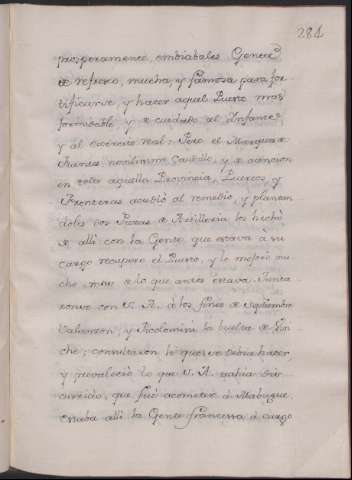 284
prosperamente, embiabales, Gente
de refresco, mucha, y famosa para for-
tificarse, y hacer aquel Puerto mas
formidable y de cuidado al Infante
y al exercito real: Pero el Marques de
Fuentes nobilissimo Caudillo, y de
en toda aquella Provincia, Puertos, y
Fronteras acudió al remedio, y plantan-
doles dos Piezas de Artilleria los hechó
de alli con la Gente, que estava á su
cargo recuperó el Puerto, y lo mejoró mu-
cho mas de lo que antes estava. Junta-
ronse con S. A. á los fines de Septiembre
Balanzon, y Picolomini la buelta de Vin-
che; consultaron lo que se debia hacer,
y prevaleció lo que S. A. havia
currido, que fué acometer á Mabuque,
estaba alli la Gente francessa á cargo